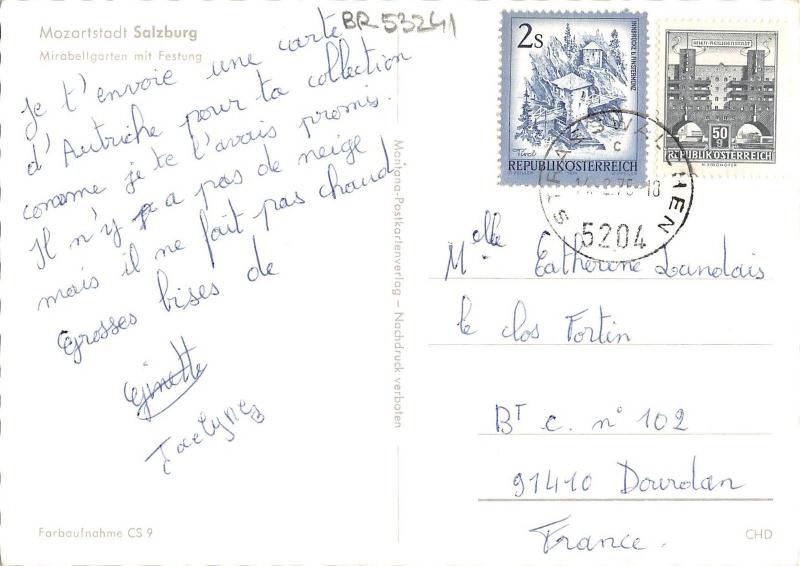 Mozartstadt Salzburg
Mirabellgarten mit Festung
BR 53241
Je t'envoie une carte
d'Autriche pour ta collection
comme je te l'avais promis.
Il n'y a pas de neige
mais il ne fait pas chaud
Grosses bises de
Ginette
Jocelyne
Farbaufnahme CS 9
Montana-Postkartenverlag – Nachdruck verboten
2s
REPUBLIK ÖSTERREICH
WIEN-HEILIGENSTADT
50 g
REPUBLIK ÖSTERREICH
STRASSWALCHEN
c
5204
Melle Catherine Landais
le clos Fortin
BT C. n° 102
91410 Dourdan
France.
CHD